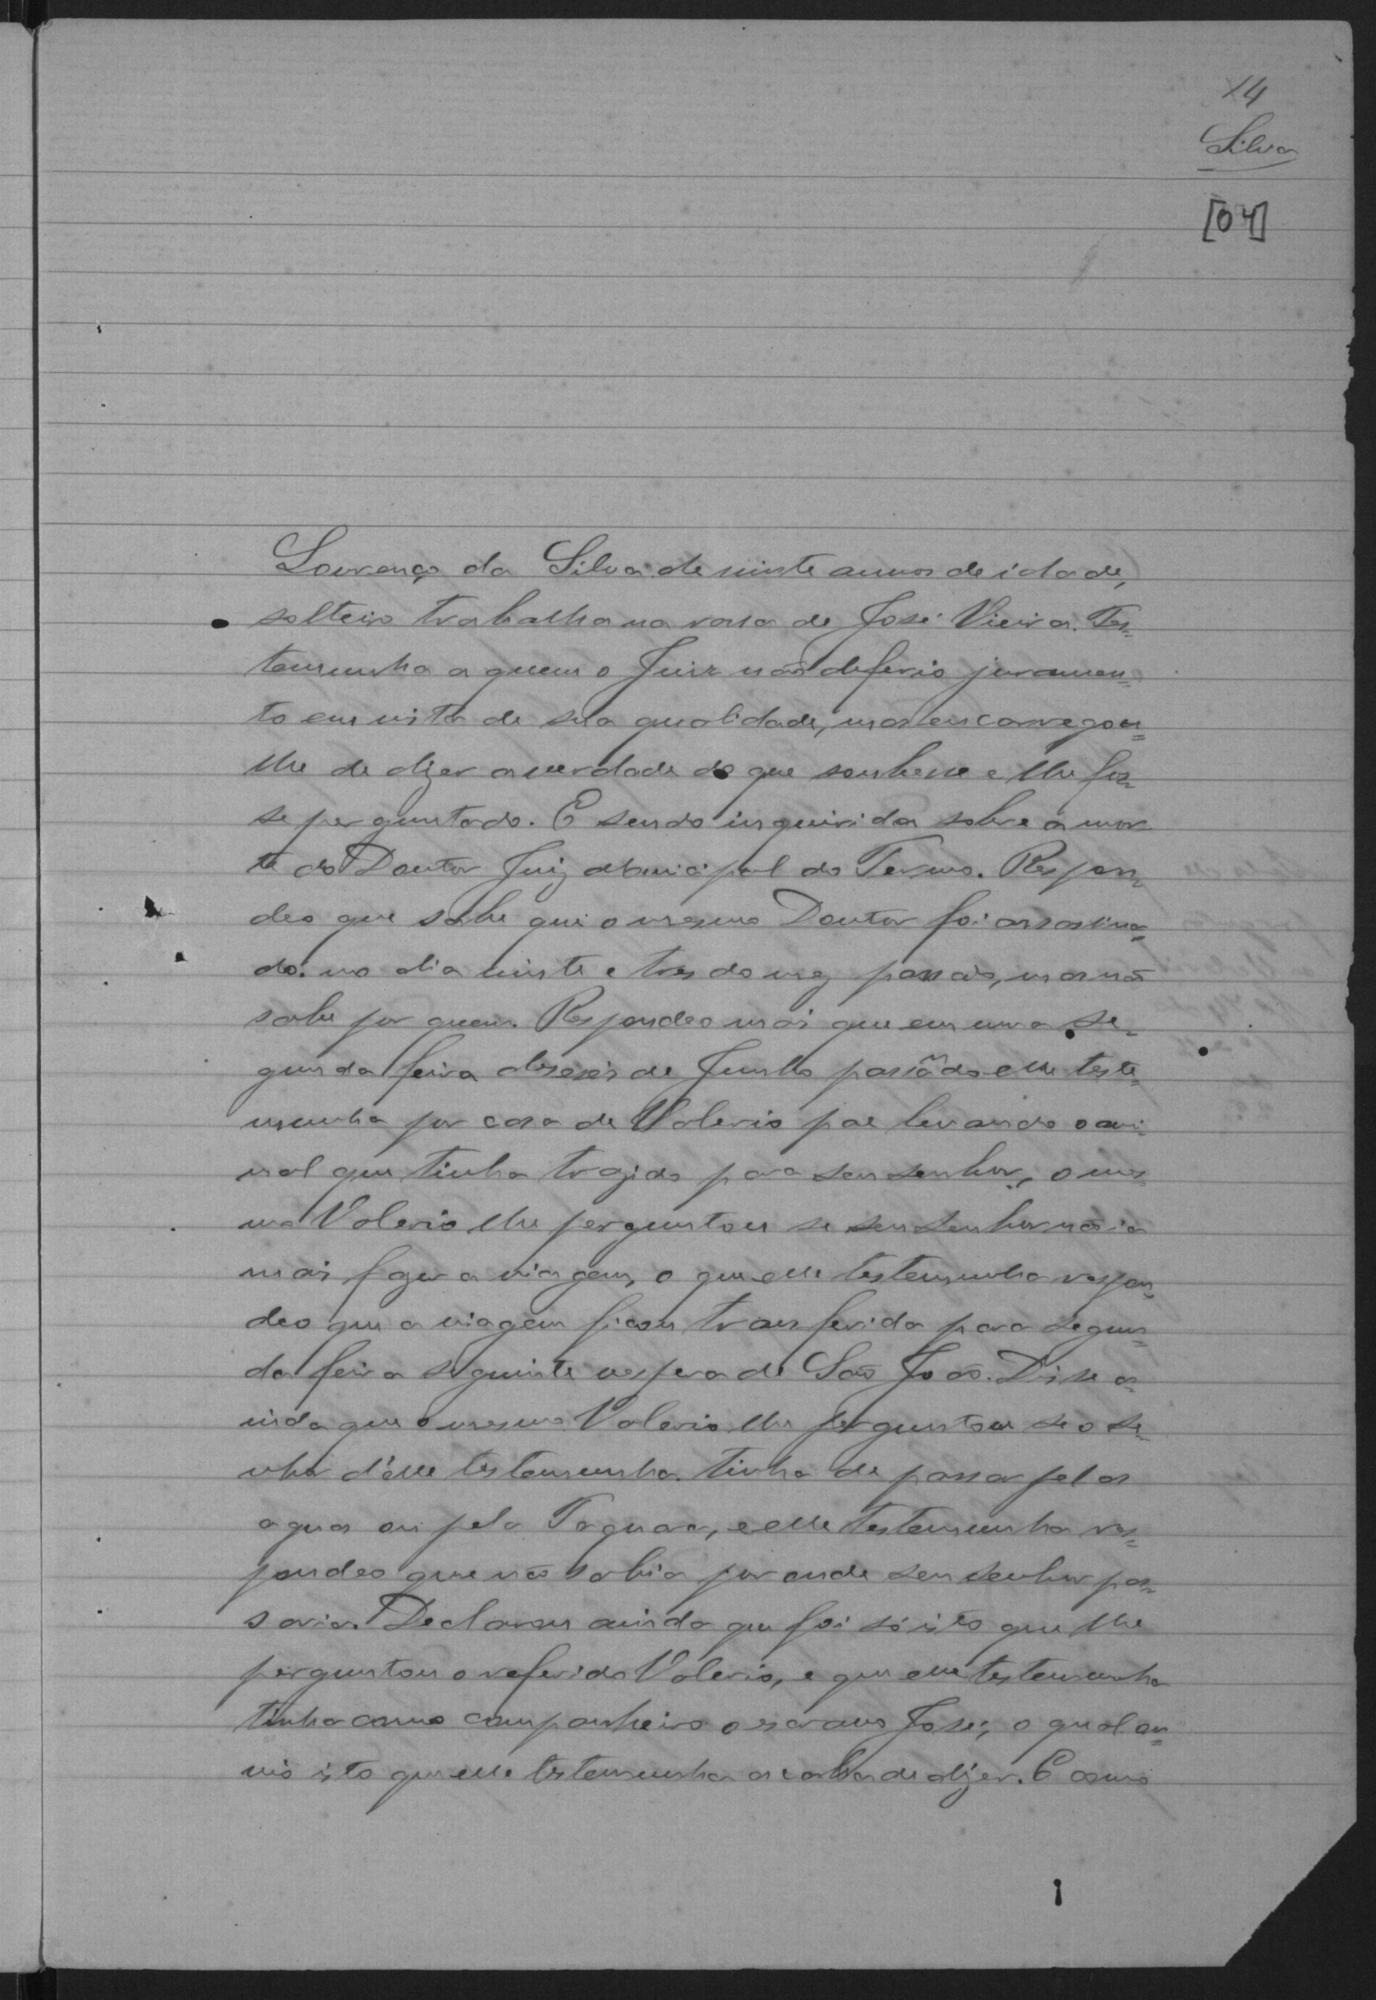 14
Silva
[04]
Lourenço da Silva de vinte annos de idade,
solteiro trabalha na rossa de José Vieira. Tes-
temunha a quem o Juiz não deferio juramen-
to em vista de sua qualidade, mas encarregou-
lhe de dizer a verdade do que soubesse e lhe fos-
se perguntado. E sendo inquirida sobre a mor-
te do Doutor Juiz Municipal do Termo. Respon-
deo que sabe que o mesmo Doutor foi assassina-
do no dia vinte e tres do mez passado, mas não
sabe por quem. Respondeo mais que em uma se-
gunda feira deseseis de Junho passãdo elle teste-
munha por casa de Valerio pae levando o ani-
mal que tinha trazido para seu senhor, o mes-
mo Valerio lhe perguntou se seu senhor não ia
mais fazer a viagem, o que elle testemunha respon-
deo que a viagem ficou transferida para segun-
da feira seguinte vespera de São João. Disse a-
inda que o mesmo Valerio lhe perguntou se o se-
nhor d'elle testemunha tinha de passar pelas
aguas ou pela Taquara, e elle testemunha res-
pondeo que não sabia por onde seu senhor pas-
saria. Declarou ainda que foi só isto que lhe
perguntou o referido Valerio, e que elle testemunha
tinha como companheiro o escravo José; o qual ou-
vio isto que elle testemunha acaba de dizer. E como